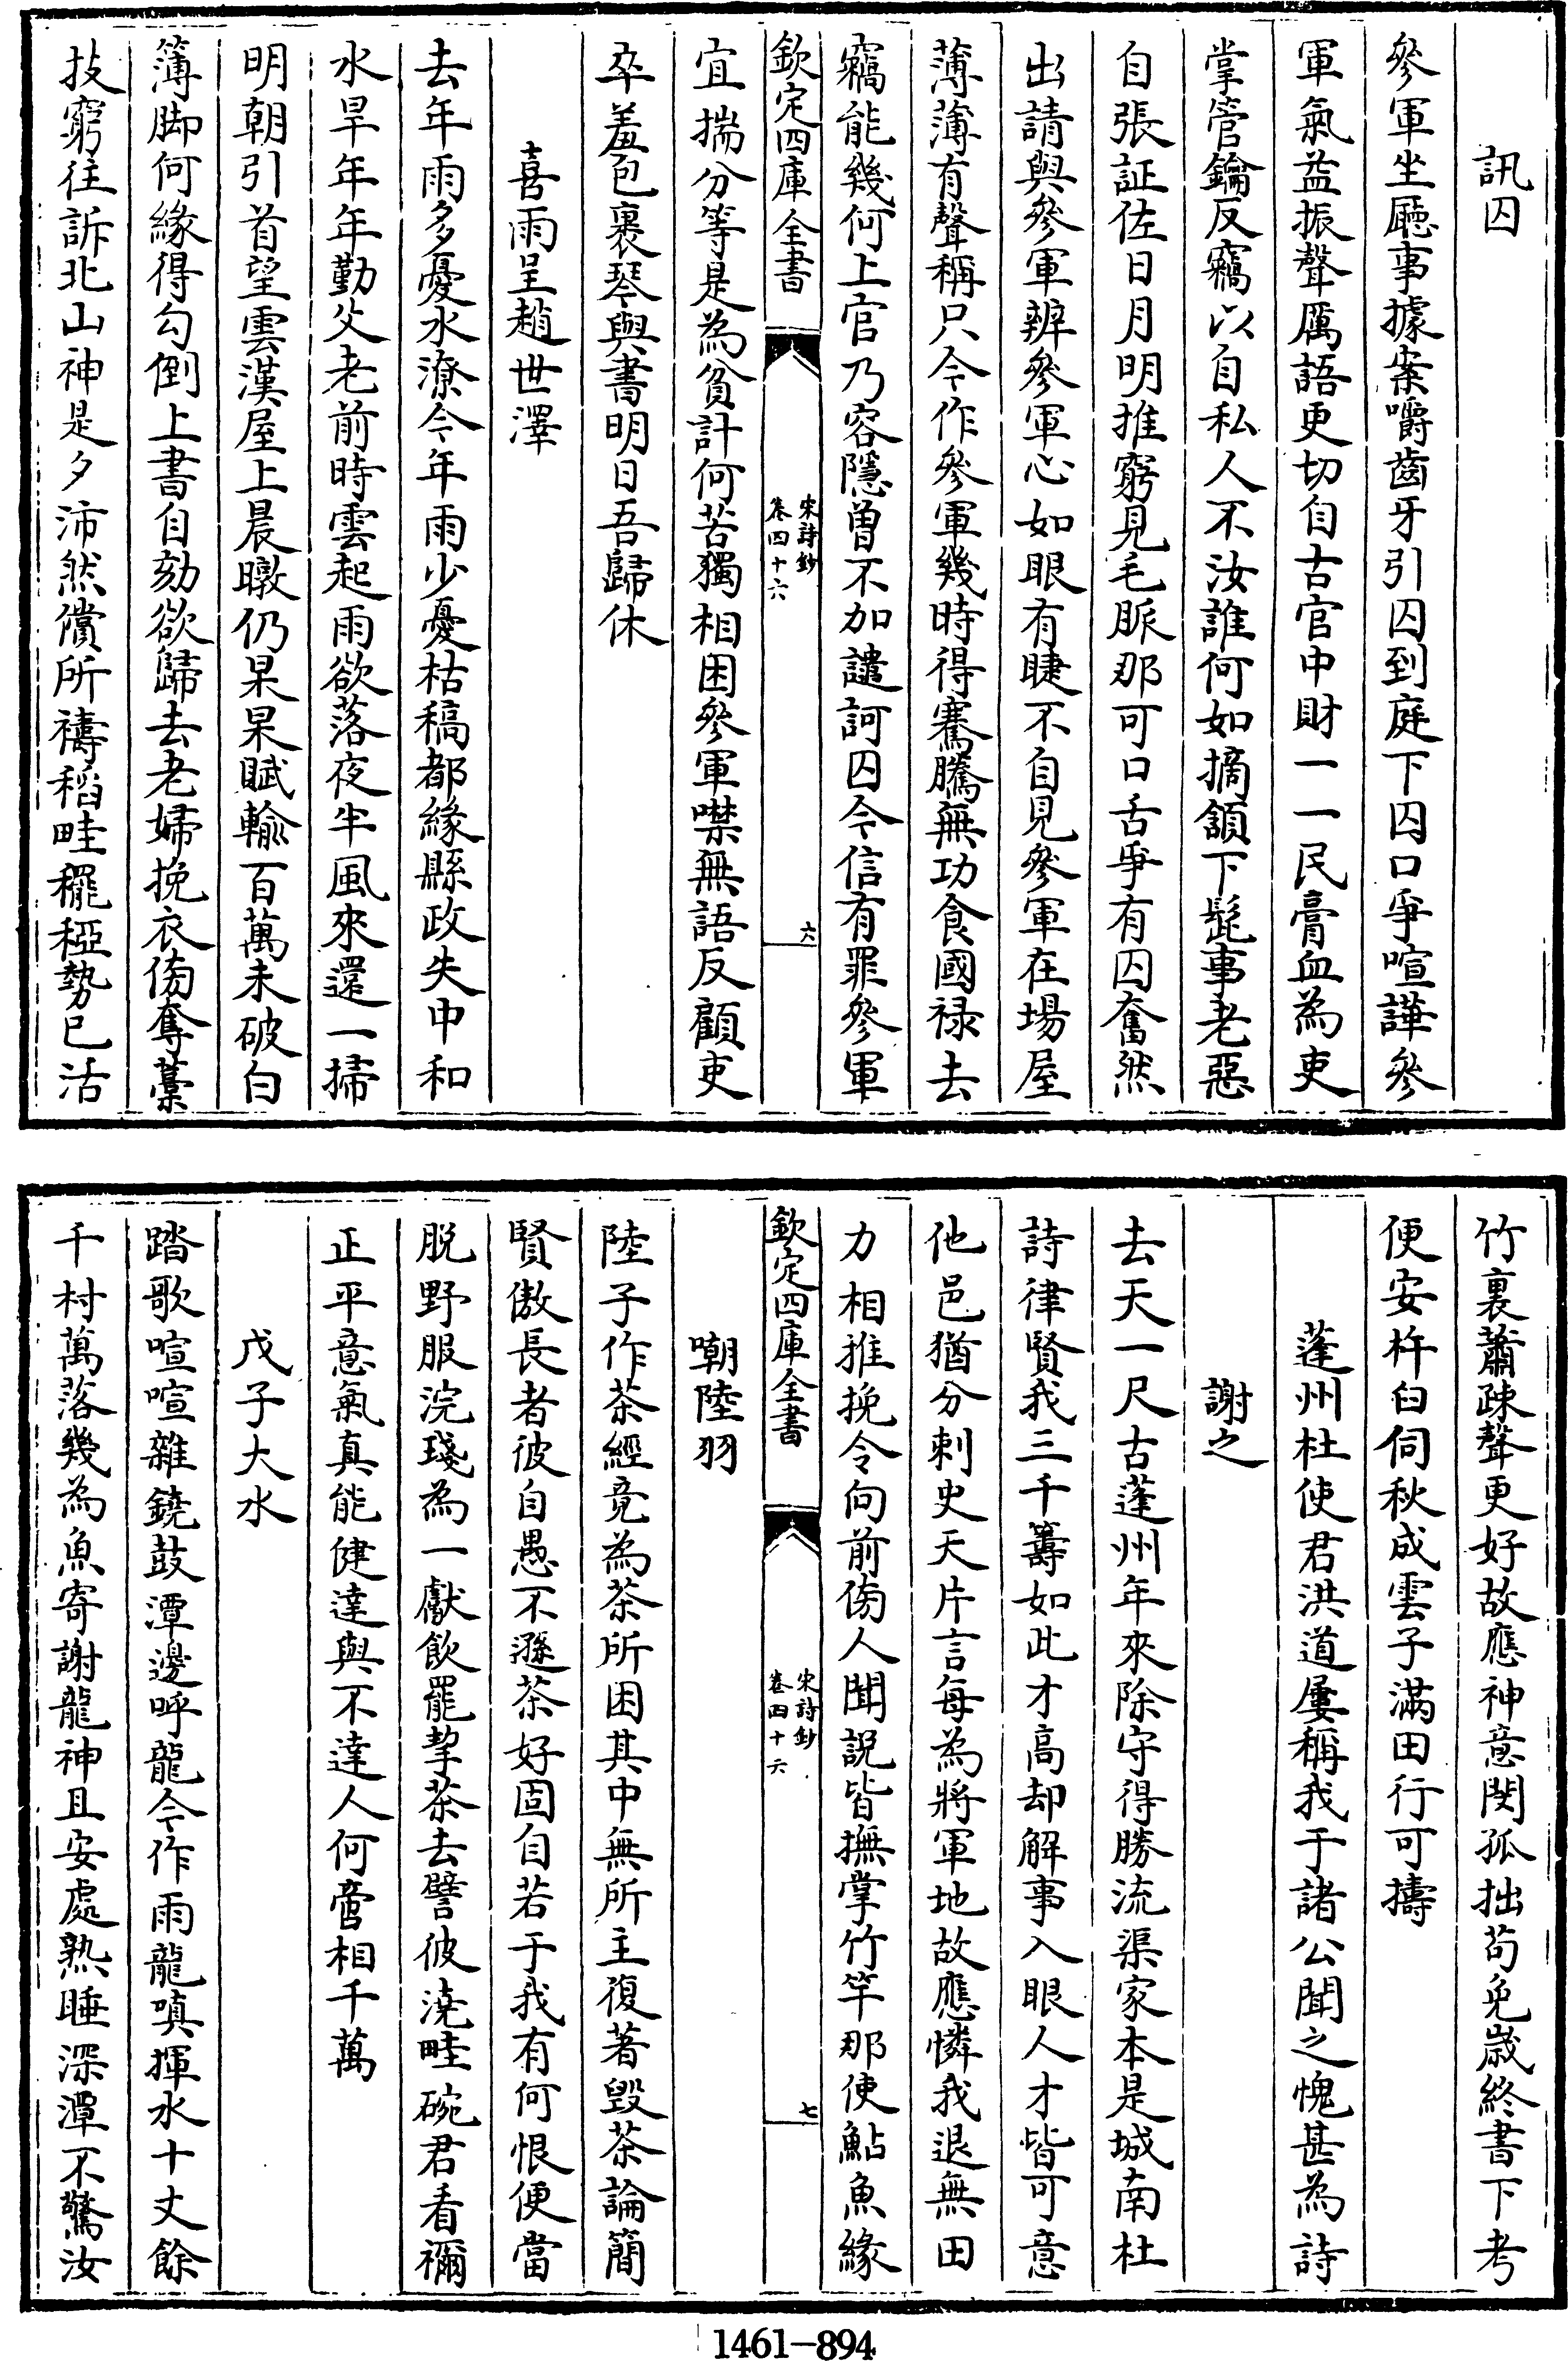 訊囚
參軍坐廳事據案嚼齒牙引囚到庭下囚口爭喧譁參
軍氣益振聲厲語更切自古官中財一一民膏血為吏
掌管鑰反竊以自私人不汝誰何如摘頷下髭事老惡
自張証佐日月明推窮見毛脈那可口舌爭有囚奮然
出請與參軍辨參軍心如眼有睫不自見參軍在場屋
薄薄有聲稱只今作參軍幾時得騫騰無功食國祿去
竊能幾何上官乃容隱曽不加譴訶囚今信有罪參軍
欽定四庫全書
宋詩鈔
卷四十六
六
宜揣分等是為貧計何苦獨相困參軍噤無語反顧吏
卒羞包裹琴與書明日吾歸休
喜雨呈趙世澤
去年雨多憂水潦今年雨少憂枯稿都緣縣政失中和
水旱年年勤父老前時雲起雨欲落夜半風來還一掃
明朝引首望雲漢屋上晨暾仍杲杲賦輸百萬未破白
簿脚何緣得勾倒上書自劾欲歸去老婦挽衣傍奪藁
技窮往訴北山神是夕沛然償所禱稻畦䆉稏勢已活
竹裏蕭疎聲更好故應神意閔孤拙苟免歲終書下考
便安杵臼伺秋成雲子滿田行可擣
蓬州杜使君洪道屢稱我于諸公聞之愧甚為詩
謝之
去天一尺古蓬州年來除守得勝流渠家本是城南杜
詩律賢我三千籌如此才高却解事入眼人才皆可意
他邑猶分刺史天片言每為將軍地故應憐我退無田
力相推挽令向前傍人聞説皆撫掌竹竿那使鮎魚緣
欽定四庫全書
宋詩鈔
卷四十六
七
嘲陸羽
陸子作茶經竟為茶所困其中無所主復著毀茶論簡
賢傲長者彼自愚不遜茶好固自若于我有何恨便當
脱野服浣琖為一獻飲罷挈茶去譬彼澆畦碗君看禰
正平意氣真能健達與不達人何啻相千萬
戊子大水
踏歌喧喧雜鐃鼓潭邊呼龍令作雨龍嗔揮水十丈餘
千村萬落幾為魚寄謝龍神且安處熟睡深潭不驚汝
1461-894